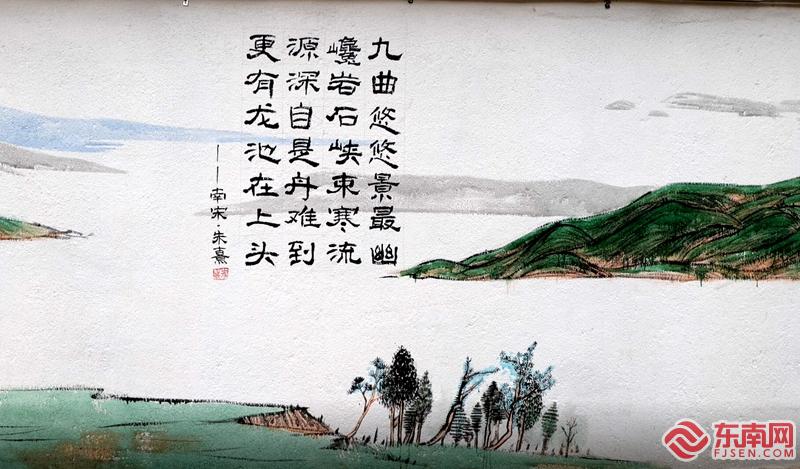 九曲悠悠景最幽
巉岩石峡束寒流
源深自是舟难到
更有龙池在上头
——南宋·朱熹
东南网
FJSEN.COM